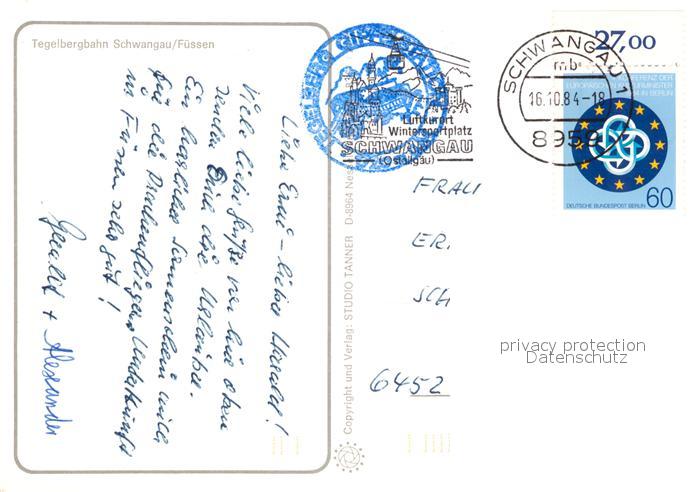 Tegelbergbahn Schwangau/Füssen
Liebe Erni - lieber Harald!
Viele liebe Grüße von hier oben
senden Dir die Urlauber.
Ein herrlicher Sonnenschein will
für die Drachenflieger. Unterkunft
in Füssen sehr gut!
Gerald + Alexander
Copyright und Verlag: STUDIO TANNER D-8964 Nes
Luftkurort
Wintersportplatz
SCHWANGAU
(Ostallgäu)
SCHWANGAU 1
mb
16.10.84-18
8959
27,00
KONFERENZ DER
IN BERLIN
DEUTSCHE BUNDESPOST BERLIN
60
FRAU
ER.
SCH
6452
privacy protection
Datenschutz